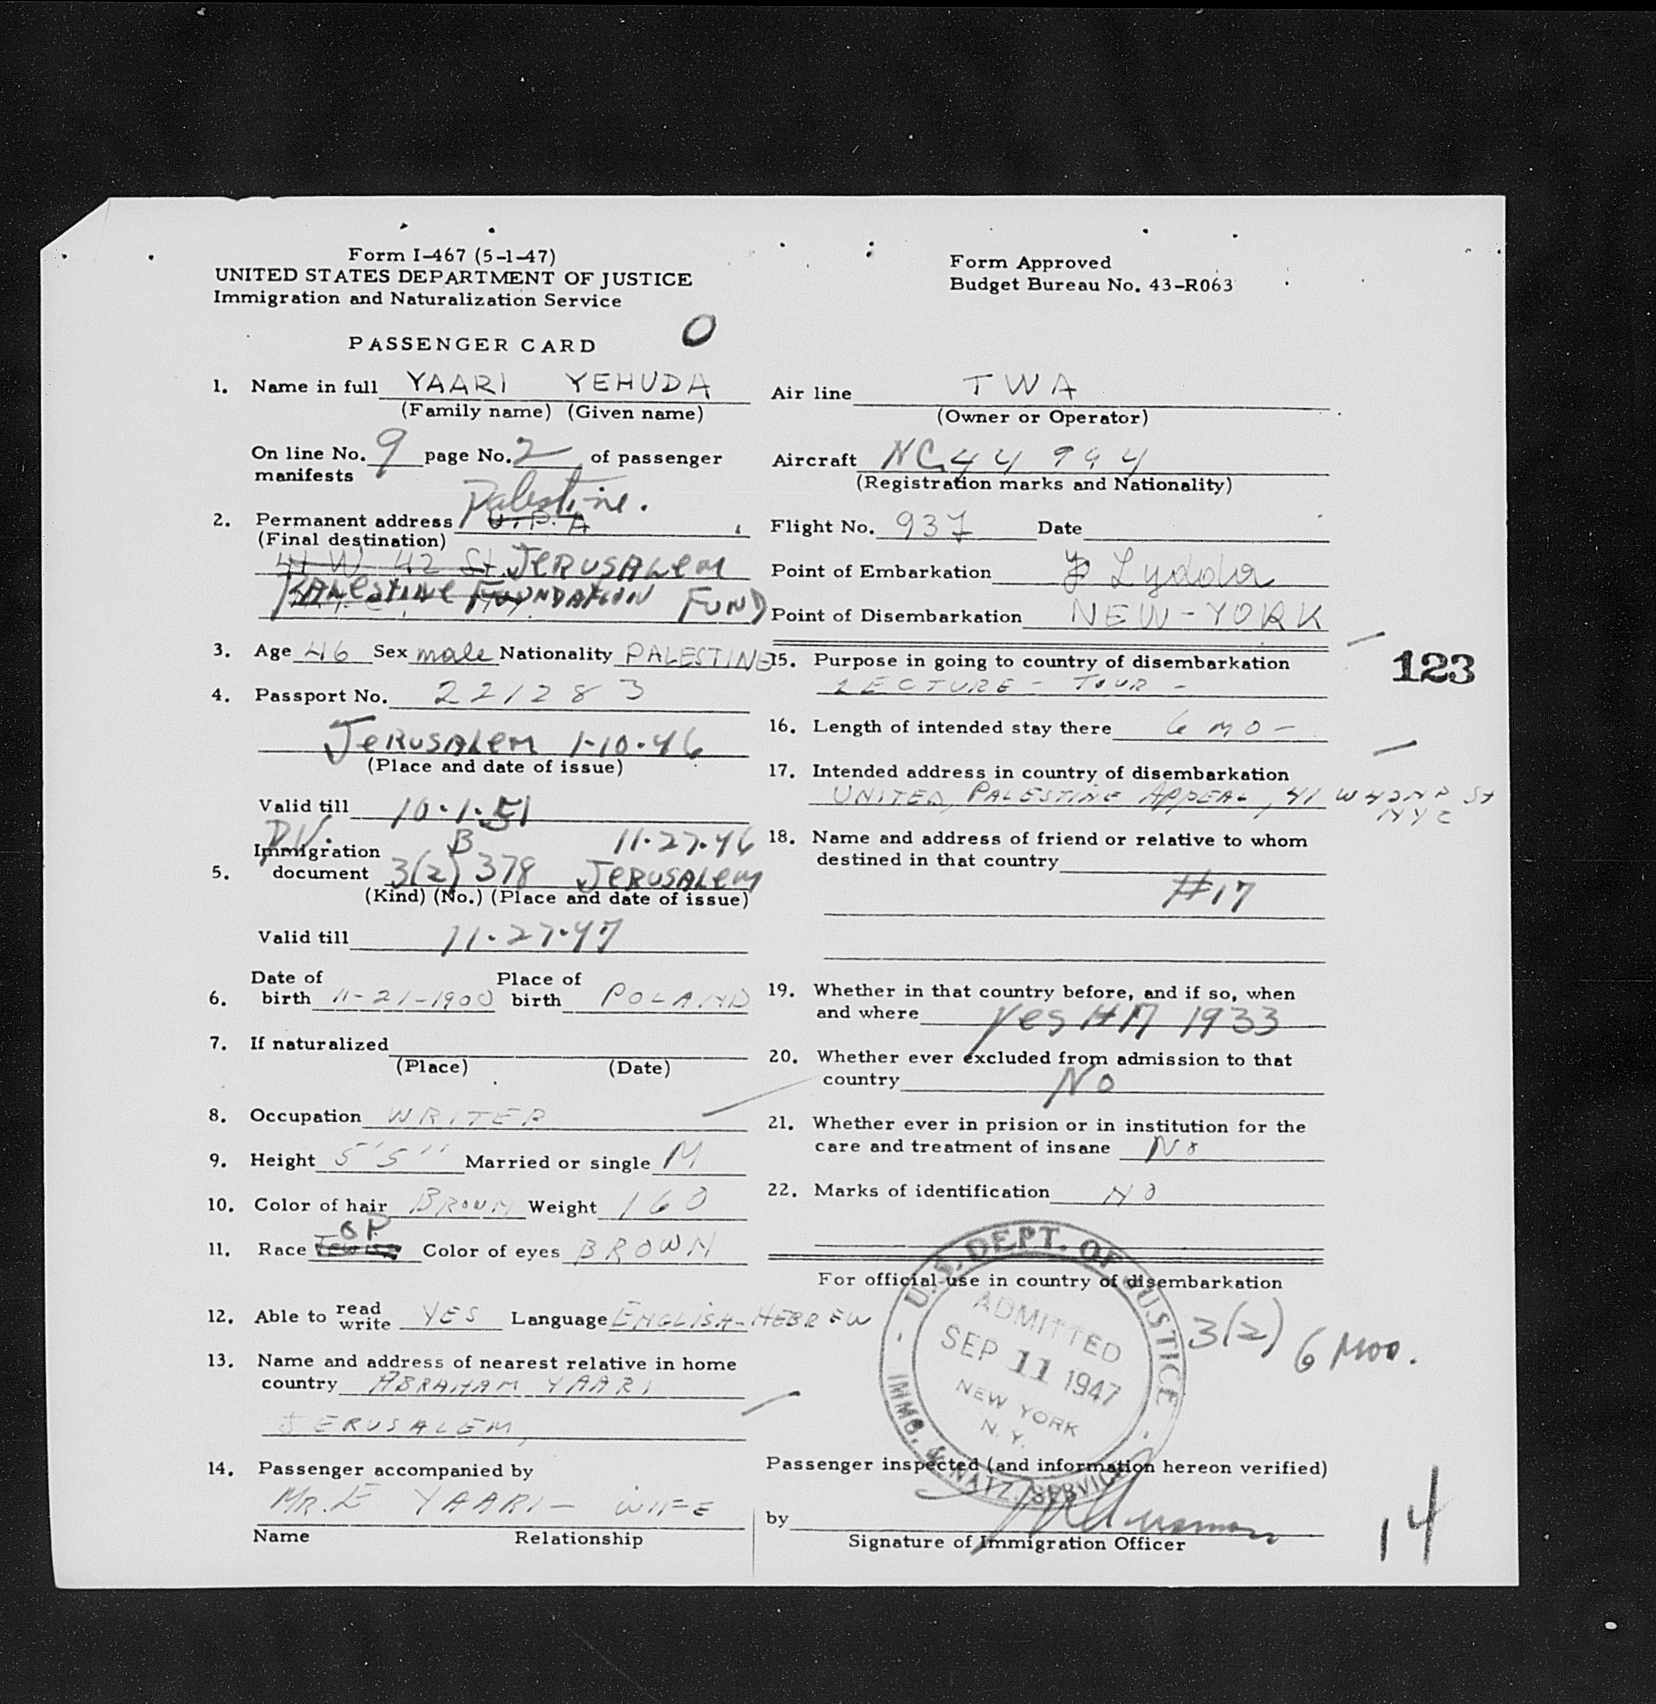 Form I-467 (5-1-47)
UNITED STATES DEPARTMENT OF JUSTICE
Immigration and Naturalization Service
Form Approved
Budget Bureau No. 43-R063
PASSENGER CARD
O
1. Name in full YAARI YEHUDA
(Family name) (Given name)
On line No. 9 page No. 2 of passenger
manifests
Palestine.
2. Permanent address U.P.A
(Final destination)
41 W 42 St JERUSALEM
PALESTINE FOUNDATION FUND
3. Age 46 Sex male Nationality PALESTINE
4. Passport No. 221283
JERUSALEM 1-10-46
(Place and date of issue)
Valid till 10.1.51
P.V. B 11-27-46
5. Immigration
document 3(2) 378 JERUSALEM
(Kind) (No.) (Place and date of issue)
Valid till 11-27-47
6. Date of birth 11-21-1900 Place of birth POLAND
7. If naturalized
(Place) (Date)
8. Occupation WRITER
9. Height 5'5'' Married or single M
10. Color of hair BROWN Weight 160
OP
11. Race Jewish Color of eyes BROWN
12. Able to read write YES Language ENGLISH-HEBREW
13. Name and address of nearest relative in home
country ABRAHAM YAARI
JERUSALEM,
14. Passenger accompanied by
MR. E YAARI - WIFE
Name Relationship
Air line TWA
(Owner or Operator)
Aircraft NC 44994
(Registration marks and Nationality)
Flight No. 937 Date
Point of Embarkation Lydda
Point of Disembarkation NEW-YORK
123
15. Purpose in going to country of disembarkation
LECTURE - TOUR -
16. Length of intended stay there 6 MO -
17. Intended address in country of disembarkation
UNITED, PALESTINE APPEAL, 41 W 42ND St
NYC
18. Name and address of friend or relative to whom
destined in that country
#17
19. Whether in that country before, and if so, when
and where Yes #17 1933
20. Whether ever excluded from admission to that
country No
21. Whether ever in prision or in institution for the
care and treatment of insane No
22. Marks of identification NO
For official use in country of disembarkation
U.S. DEPT. OF JUSTICE
ADMITTED
SEP 11 1947
NEW YORK
N. Y.
IMMG. & NATZ. SERVICE
3(2) 6 Mos.
Passenger inspected (and information hereon verified)
by
Signature of Immigration Officer
14